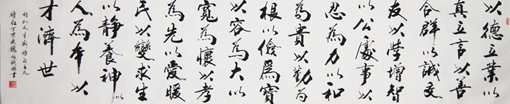 以德立業以
真立言以善
合群以誠交
友以學增智
以公處事以
忍為力以和
為根以儉為寶
以容為大以
寬為懷以孝
為先以愛暖
民以變求生
以靜養神以
人為本以
才濟世